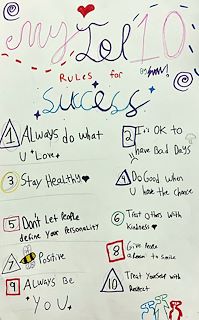 My Lol 10
Rules for
Success
1 Always do what
U Love
2 It's OK to
have Bad Days
3 Stay Healthy
4 Do Good when
U have the Chance
5 Don't Let People
define your Personality
6 Treat Others With
Kindness
7 Positive
8 Give People
a reason to smile
9 Always Be
"YOU"
10 Treat Yourself with
Respect